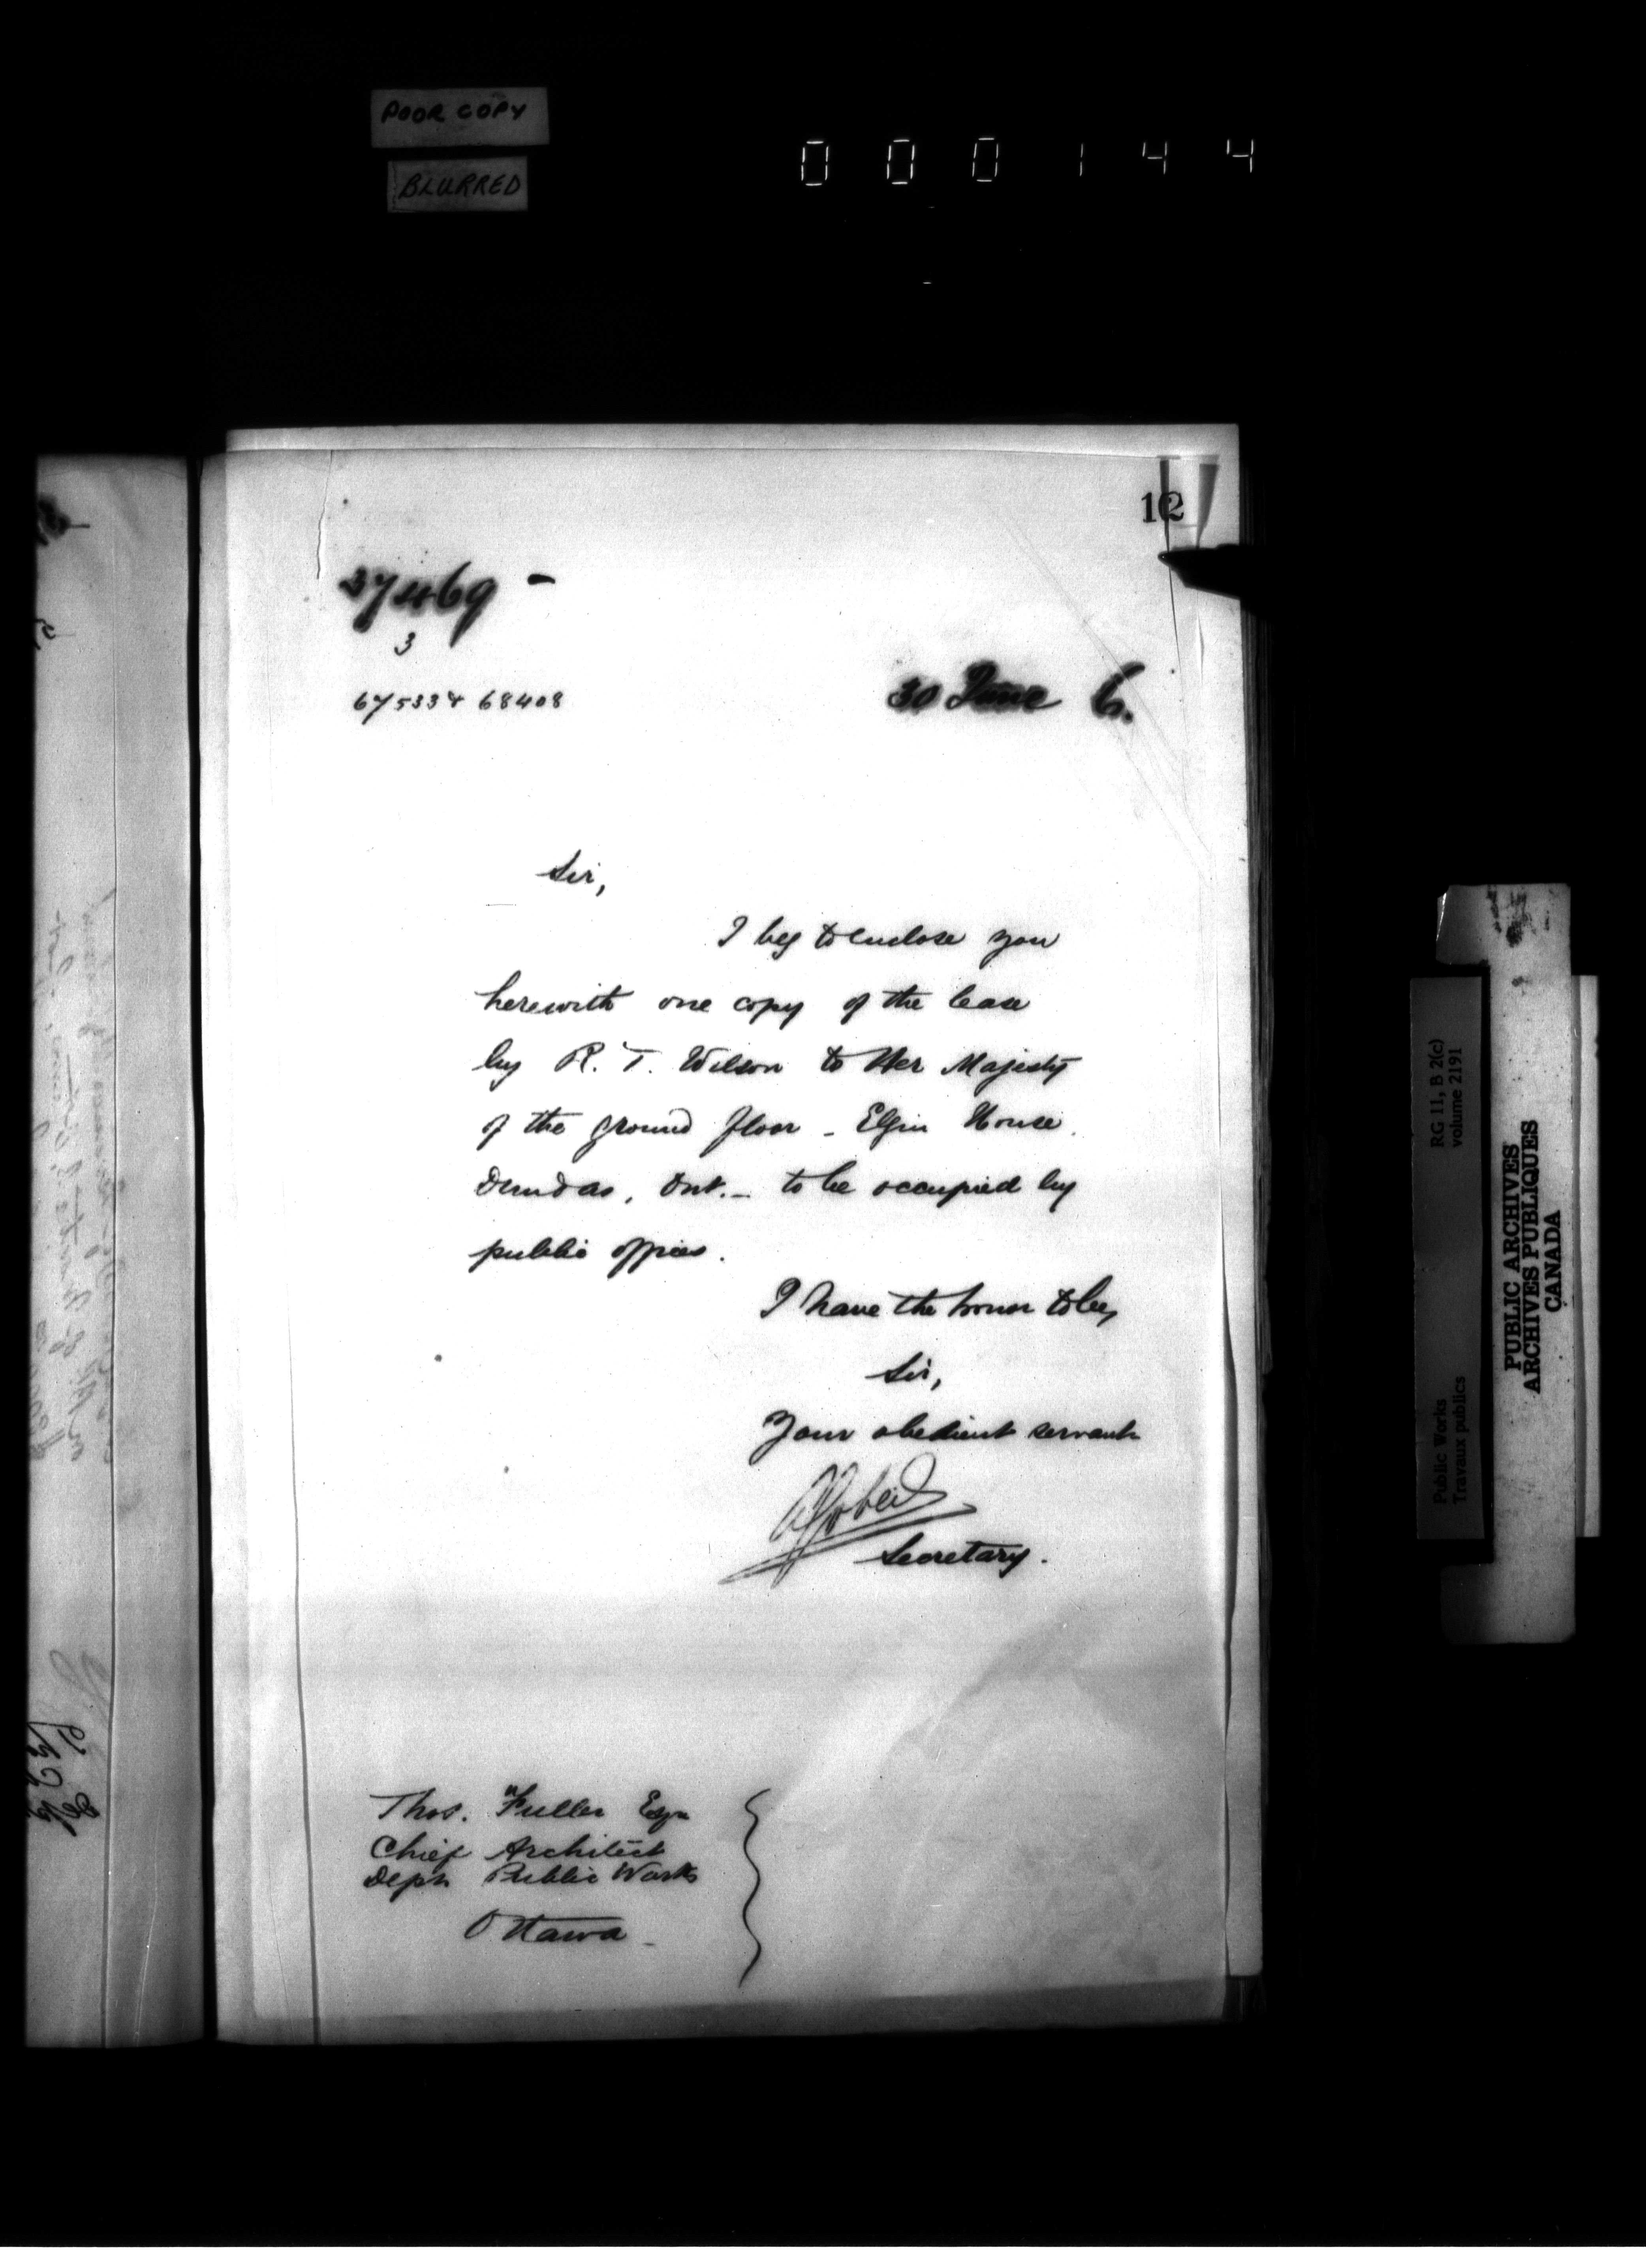 POOR COPY
BLURRED
000144
12
37469 -
3
67533 & 68408
30 June 6.
Sir,
I beg to enclose you
herewith one copy of the lease
by R. T. Wilson to Her Majesty
of the ground floor - Elgin House.
Dundas, Ont. - to be occupied by
public offices.
I have the honor to be,
Sir,
Your obedient servant
AGobeil
Secretary.
Thos. Fuller Esqr
Chief Architect
Dept Public Works
Ottawa -
RG 11, B 2(c)
volume 2191
Public Works
Travaux publics
PUBLIC ARCHIVES
ARCHIVES PUBLIQUES
CANADA